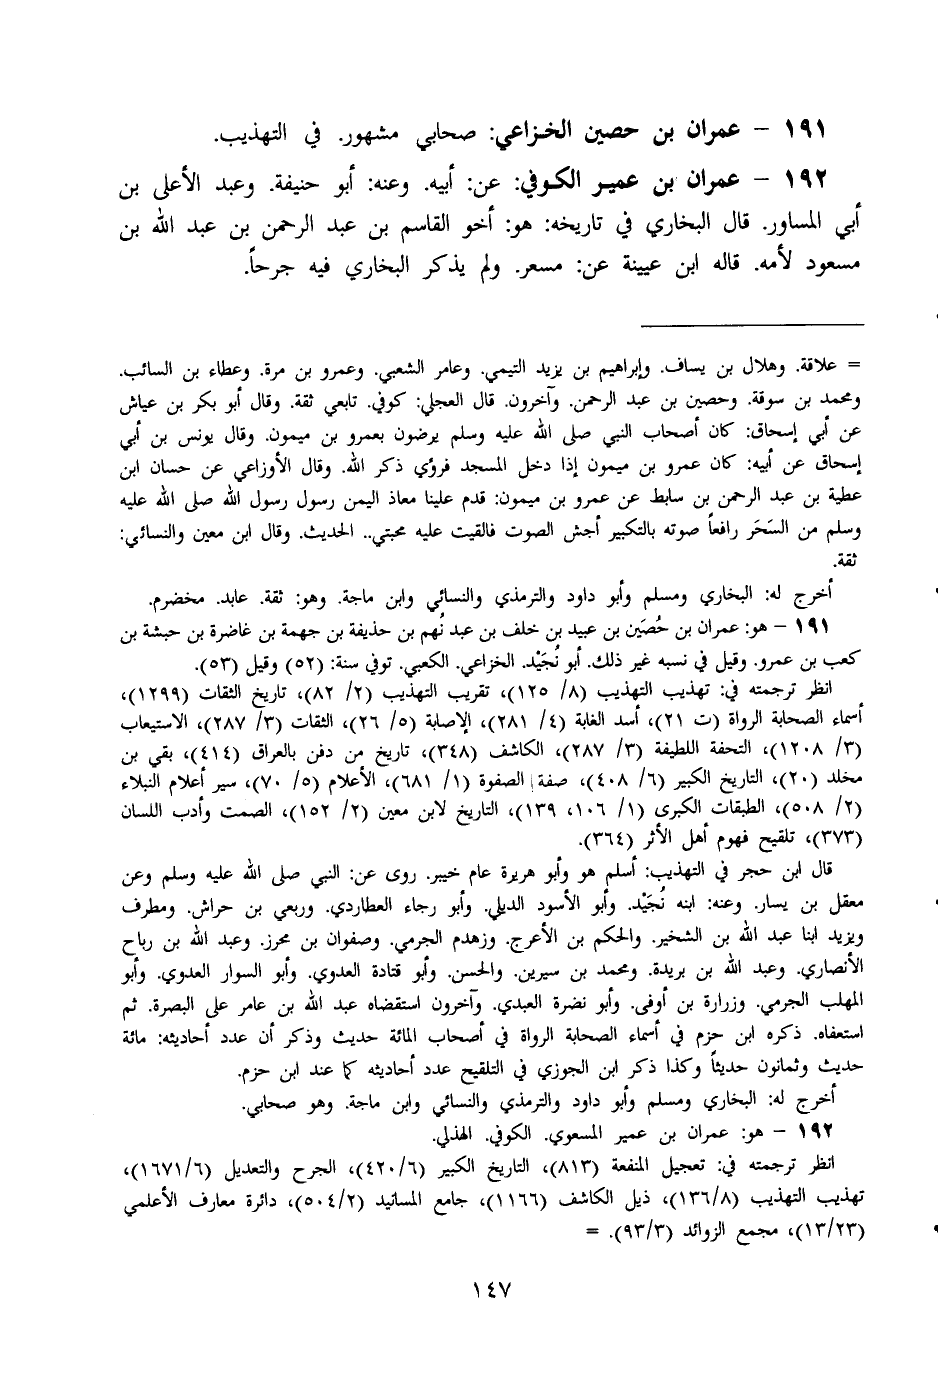 ١٩١ – عمران بن حصين الخزاعي: صحابي مشهور. في التهذيب.
١٩٢ – عمران بن عمير الكوفي: عن: أبيه. وعنه: أبو حنيفة. وعبد الأعلى بن
أبي المساور. قال البخاري في تاريخه: هو: أخو القاسم بن عبد الرحمن بن عبد الله بن
مسعود لأمه. قاله ابن عيينة عن: مسعر. ولم يذكر البخاري فيه جرحاً.
= علاقة. وهلال بن يساف. وإبراهيم بن يزيد التيمي. وعامر الشعبي. وعمرو بن مرة. وعطاء بن السائب.
ومحمد بن سوقة. وحصين بن عبد الرحمن. وآخرون. قال العجلي: كوفي. تابعي ثقة. وقال أبو بكر بن عياش
عن أبي إسحاق: كان أصحاب النبي صلى الله عليه وسلم يرضون بعمرو بن ميمون. وقال يونس بن أبي
إسحاق عن أبيه: كان عمرو بن ميمون إذا دخل المسجد فرؤي ذكر الله. وقال الأوزاعي عن حسان ابن
عطية بن عبد الرحمن بن سابط عن عمرو بن ميمون: قدم علينا معاذ اليمن رسول رسول الله صلى الله عليه
وسلم من السَحَر رافعاً صوته بالتكبير أجش الصوت فالقيت عليه محبتي.. الحديث. وقال ابن معين والنسائي:
ثقة.
أخرج له: البخاري ومسلم وأبو داود والترمذي والنسائي وابن ماجة. وهو: ثقة. عابد. مخضرم.
١٩١ – هو: عمران بن حُصَين بن عبيد بن خلف بن عبد نُهم بن حذيفة بن جهمة بن غاضرة بن حبشة بن
كعب بن عمرو. وقيل في نسبه غير ذلك. أبو نُجَيْد. الخزاعي. الكعبي. توفي سنة: (٥٢) وقيل (٥٣).
انظر ترجمته في: تهذيب التهذيب (٨/ ١٢٥)، تقريب التهذيب (٢/ ٨٢)، تاريخ الثقات (١٢٩٩)،
أسماء الصحابة الرواة (ت ٢١)، أسد الغابة (٤/ ٢٨١)، الإصابة (٥/ ٢٦)، الثقات (٣/ ٢٨٧)، الاستيعاب
(٣/ ١٢٠٨)، التحفة اللطيفة (٣/ ٢٨٧)، الكاشف (٣٤٨)، تاريخ من دفن بالعراق (٤١٤)، بقي بن
مخلد (٢٠)، التاريخ الكبير (٦/ ٤٠٨)، صفة الصفوة (١/ ٦٨١)، الأعلام (٥/ ٧٠)، سير أعلام النبلاء
(٢/ ٥٠٨)، الطبقات الكبرى (١/ ١٠٦، ١٣٩)، التاريخ لابن معين (٢/ ١٥٢)، الصمت وأدب اللسان
(٣٧٣)، تلقيح فهوم أهل الأثر (٣٦٤).
قال ابن حجر في التهذيب: أسلم هو وأبو هريرة عام خيبر. روى عن: النبي صلى الله عليه وسلم وعن
معقل بن يسار. وعنه: ابنه نُجَيْد. وأبو الأسود الديلي. وأبو رجاء العطاردي. وربعي بن حراش. ومطرف
ويزيد ابنا عبد الله بن الشخير. والحكم بن الأعرج. وزهدم الجرمي. وصفوان بن محرز. وعبد الله بن رباح
الأنصاري. وعبد الله بن بريدة. ومحمد بن سيرين. والحسن. وأبو قتادة العدوي. وأبو السوار العدوي. وأبو
المهلب الجرمي. وزرارة بن أوفى. وأبو نضرة العبدي. وآخرون استقضاه عبد الله بن عامر على البصرة. ثم
استعفاه. ذكره ابن حزم في أسماء الصحابة الرواة في أصحاب المائة حديث وذكر أن عدد أحاديثه: مائة
حديث وثمانون حديثاً وكذا ذكر ابن الجوزي في التلقيح عدد أحاديثه كما عند ابن حزم.
أخرج له: البخاري ومسلم وأبو داود والترمذي والنسائي وابن ماجة. وهو صحابي.
١٩٢ – هو: عمران بن عمير المسعوي. الكوفي. الهذلي.
انظر ترجمته في: تعجيل المنفعة (٨١٣)، التاريخ الكبير (٤٢٠/٦)، الجرح والتعديل (١٦٧١/٦)،
تهذيب التهذيب (١٣٦/٨)، ذيل الكاشف (١١٦٦)، جامع المسانيد (٥٠٤/٢)، دائرة معارف الأعلمي
(١٣/٢٣)، مجمع الزوائد (٩٣/٣). =
١٤٧